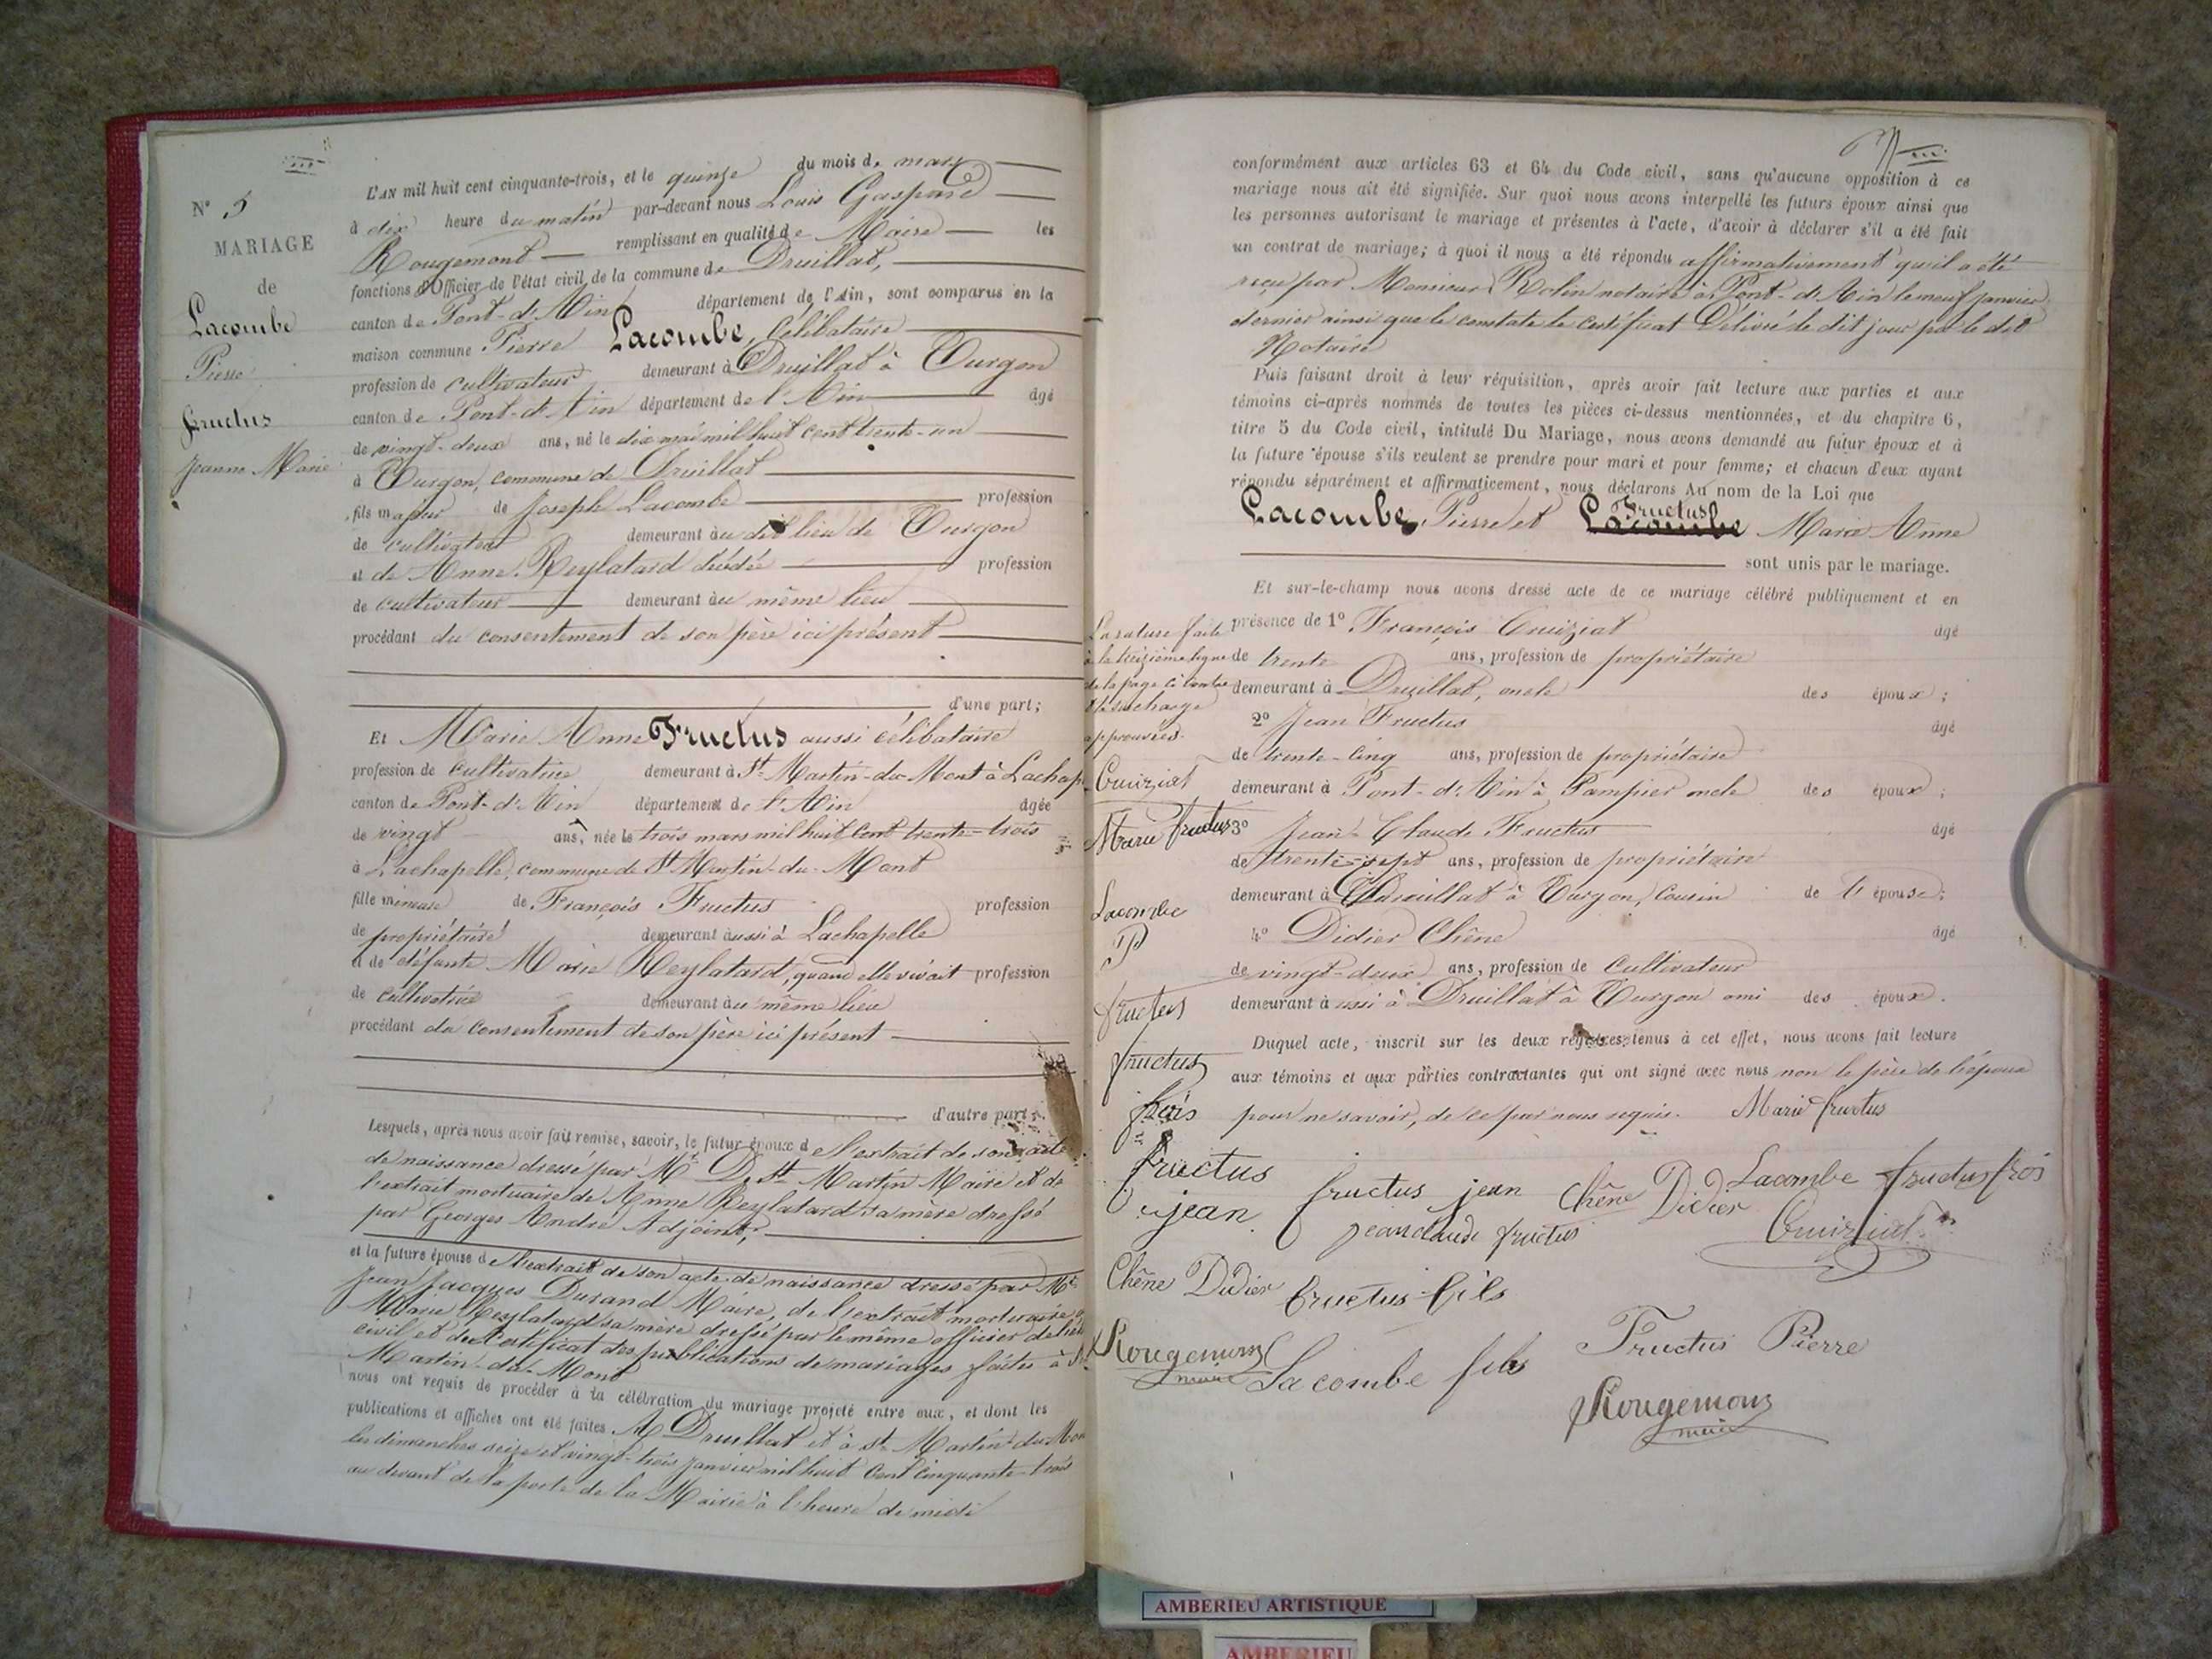 N° 5
MARIAGE
de
Lacombe
Pierre
fructus
Jeanne Marie
L'AN mil huit cent cinquante-trois, et le quinze du mois de mars
à dix heure du matin par-devant nous Louis Gaspard
Rougemont remplissant en qualité de Maire les
fonctions d'Officier de l'état civil de la commune de Druillat,
canton de Pont-d'Ain département de l'Ain, sont comparus en la
maison commune Pierre Lacombe, célibataire
profession de cultivateur demeurant à Druillat à Turgon
canton de Pont-d'Ain département de l'Ain âgé
de vingt-deux ans, né le dix mai mil huit cent trente-un
à Turgon, commune de Druillat
fils majeur de Joseph Lacombe profession
de cultivateur demeurant au dit lieu de Turgon
et de Anne Reylatard décédée profession
de cultivateur demeurant au même lieu
procédant du consentement de son père ici présent
d'une part;
Et Marie Anne Fructus aussi célibataire
profession de cultivatrice demeurant à St Martin-du-Mont à Lachap
canton de Pont-d'Ain département de l'Ain âgée
de vingt ans, née le trois mars mil huit cent trente-trois
à Lachapelle, commune de St Martin-du-Mont
fille mineure de François Fructus profession
de propriétaire demeurant aussi à Lachapelle
et de défunte Marie Reylatard, quand elle vivait profession
de cultivatrice demeurant au même lieu
procédant du consentement de son père ici présent
d'autre part;
Lesquels, après nous avoir fait remise, savoir, le futur époux de l'extrait de son acte
de naissance dressé par Mr De St Martin Maire et de
l'extrait mortuaire de Anne Reylatard sa mère dressé
par Georges André Adjoint,
et la future épouse de l'extrait de son acte de naissance dressé par Mr
Jean Jacques Durand Maire, de l'extrait mortuaire
Marie Reylatard sa mère dressé par le même officier de l'état
civil et du certificat des publications de mariages faites à St
Martin-du-Mont
nous ont requis de procéder à la célébration du mariage projeté entre eux, et dont les
publications et affiches ont été faites A Druillat et à St Martin du Mon
les dimanches seize et vingt-trois janvier mil huit cent cinquante trois
au devant de la porte de la Mairie à l'heure de midi
conformément aux articles 63 et 64 du Code civil, sans qu'aucune opposition à ce
mariage nous ait été signifiée. Sur quoi nous avons interpellé les futurs époux ainsi que
les personnes autorisant le mariage et présentes à l'acte, d'avoir à déclarer s'il a été fait
un contrat de mariage; à quoi il nous a été répondu affirmativement qu'il a été
reçu par Monsieur Rolin notaire à Pont-d'Ain le neuf janvier
dernier ainsi que le constate le certificat Délivré le dit jour par le dit
Notaire
Puis faisant droit à leur réquisition, après avoir fait lecture aux parties et aux
témoins ci-après nommés de toutes les pièces ci-dessus mentionnées, et du chapitre 6,
titre 5 du Code civil, intitulé Du Mariage, nous avons demandé au futur époux et à
la future épouse s'ils veulent se prendre pour mari et pour femme; et chacun d'eux ayant
répondu séparément et affirmativement, nous déclarons Au nom de la Loi que
Fructus
Lacombe Pierre et Lacombe Marie Anne
sont unis par le mariage.
Et sur-le-champ nous avons dressé acte de ce mariage célébré publiquement et en
présence de 1° François Cruiziat âgé
de trente ans, profession de propriétaire
demeurant à Druillat, oncle des époux;
2° Jean Fructus âgé
de trente-cinq ans, profession de propriétaire
demeurant à Pont-d'Ain à Pampier oncle des époux;
3° Jean-Claude Fructus âgé
de trente-sept ans, profession de propriétaire
demeurant à Druillat à Turgon, cousin de l'épouse;
4° Didier Chêne âgé
de vingt-deux ans, profession de cultivateur
demeurant aussi à Druillat à Turgon ami des époux.
Duquel acte, inscrit sur les deux registres tenus à cet effet, nous avons fait lecture
aux témoins et aux parties contractantes qui ont signé avec nous non le père de l'époux
pour ne savoir, de ce par nous requis. Marie fructus
La rature faite
à la treizième ligne
de la page ci contre
et la surcharge
approuvées.
Cruiziat
Marie fructus
Lacombe
P
fructus
fructus
frois
fructus
jean
fructus jean Chêne Didier Lacombe fructus frois
jean claude fructus Cruiziat
Chêne Didier fructus fils
Rougemont
maire
Lacombe fils
Fructus Pierre
Rougemont
maire
AMBERIEU ARTISTIQUE
AMBERIEU